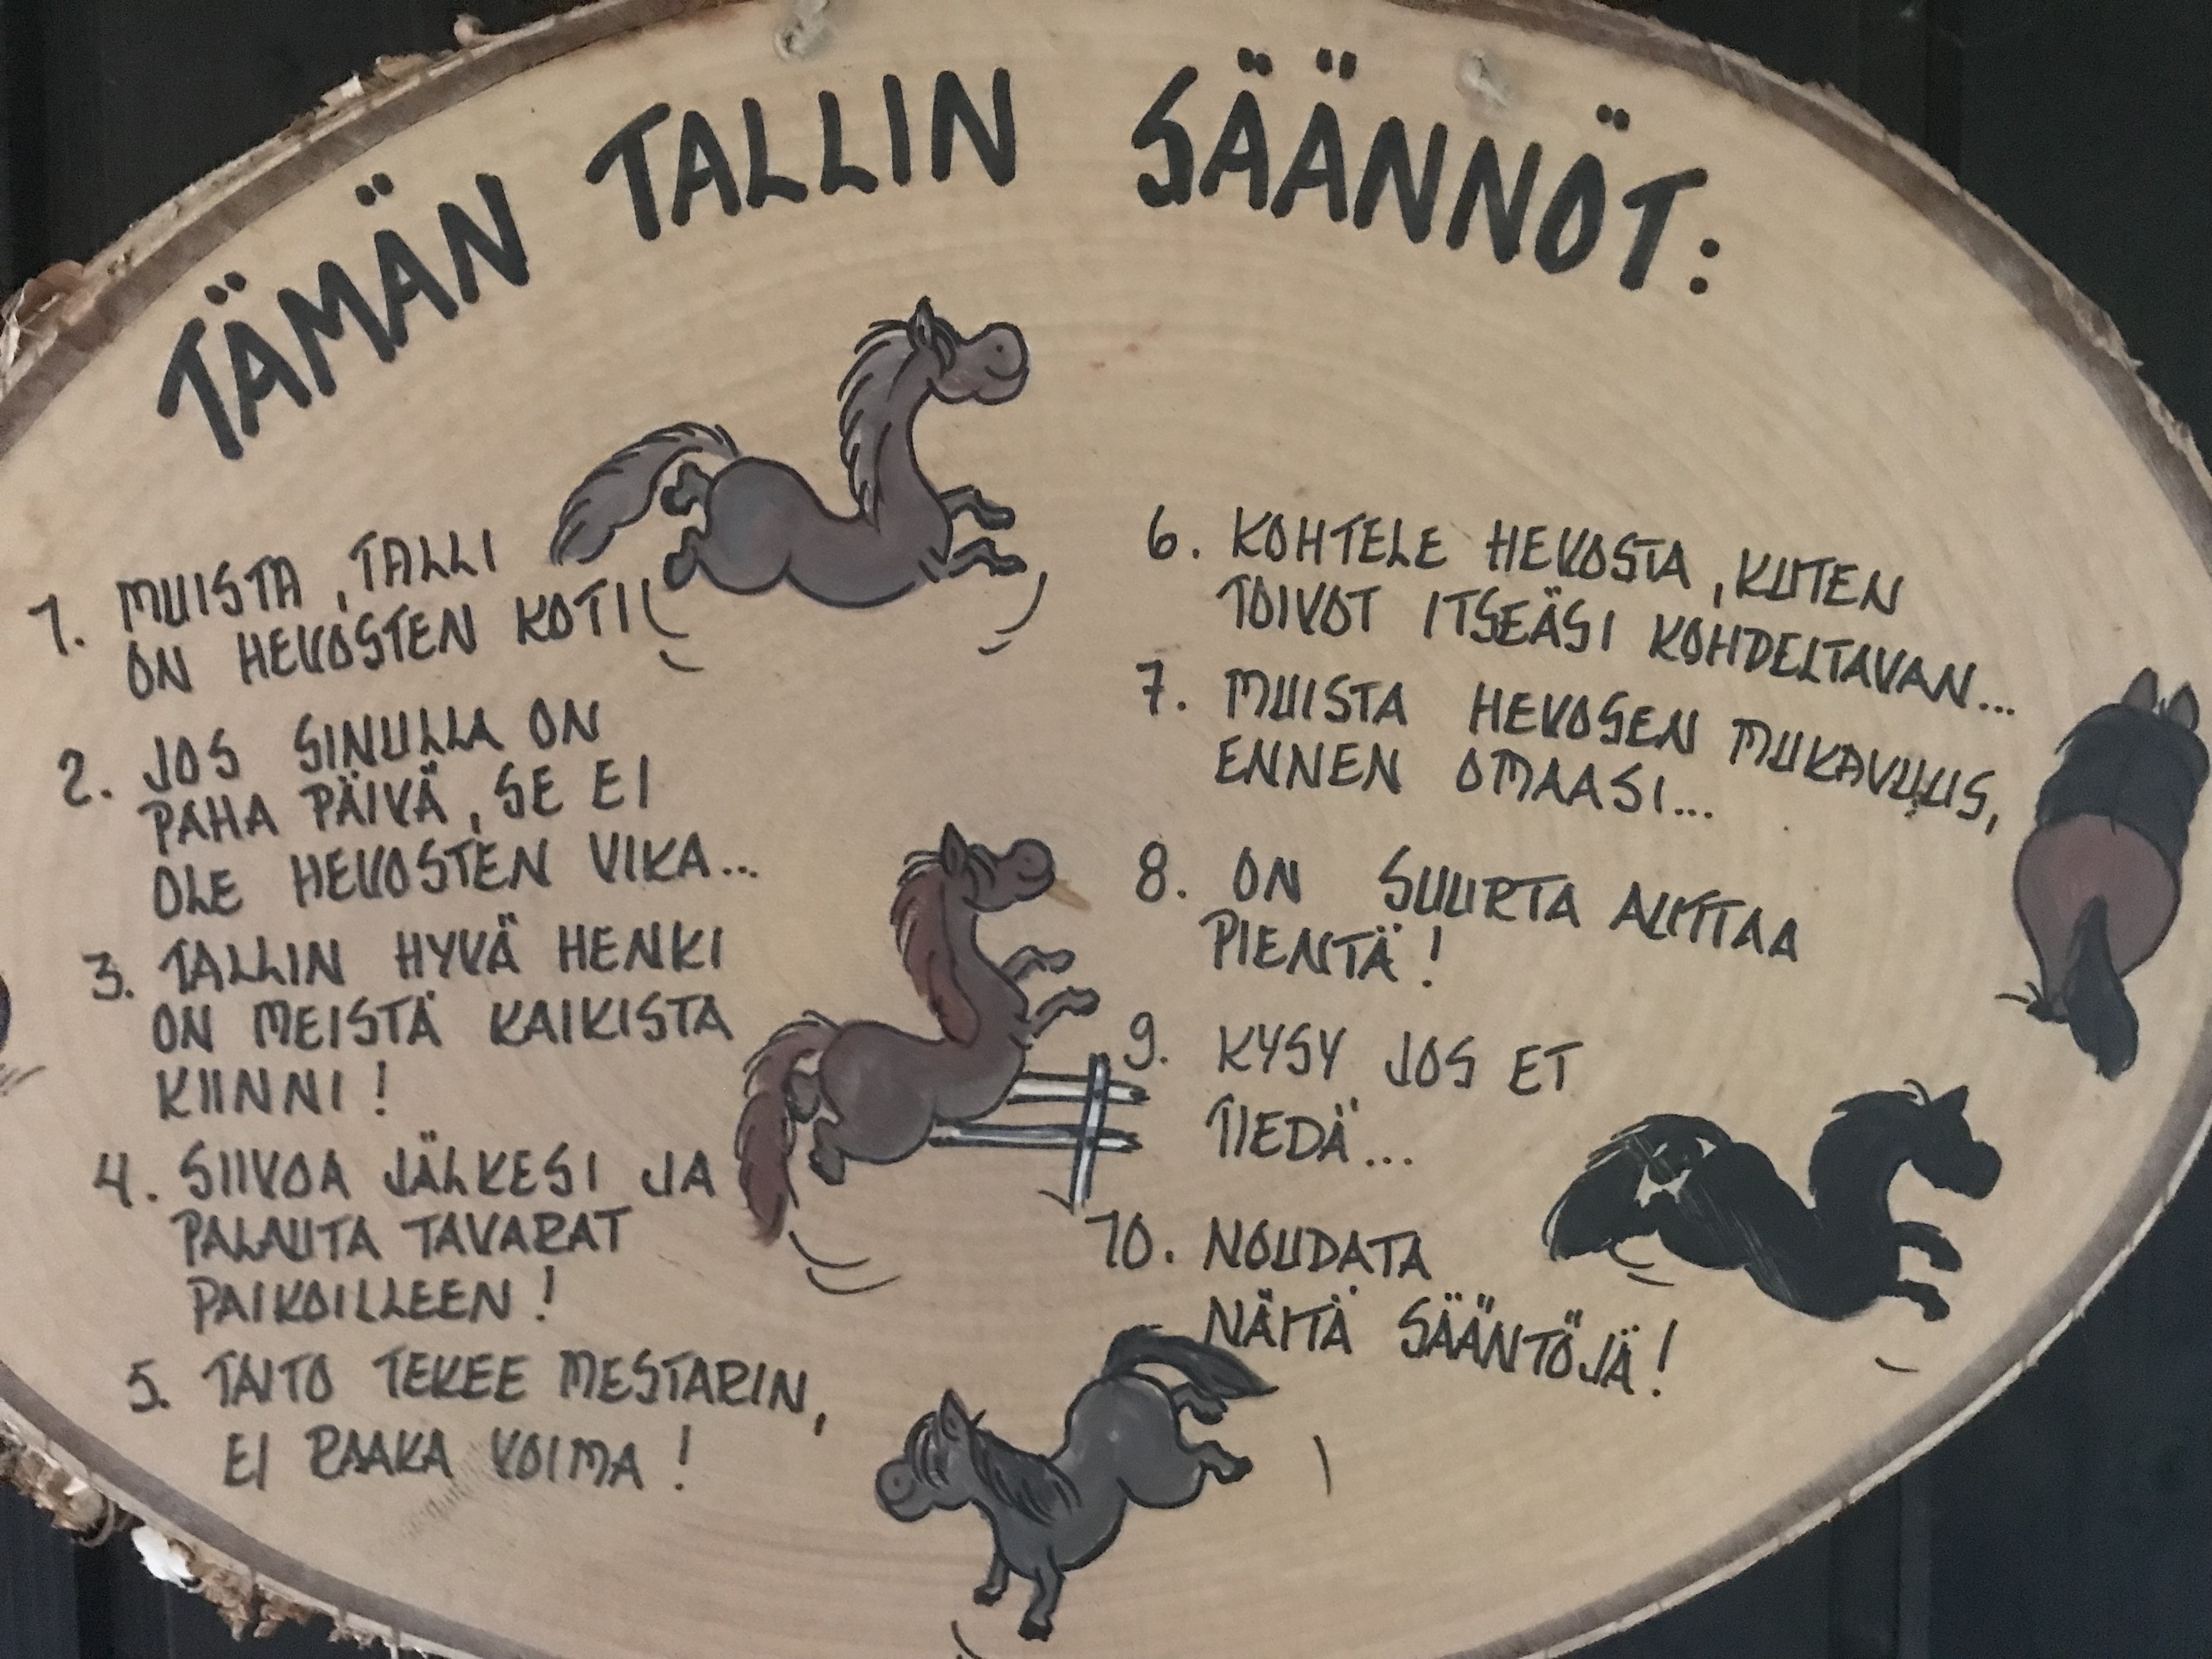 TÄMÄN TALLIN SÄÄNNÖT:
1. MUISTA, TALLI
ON HEVOSTEN KOTI
2. JOS SINULLA ON
PAHA PÄIVÄ, SE EI
OLE HEVOSTEN VIKA...
3. TALLIN HYVÄ HENKI
ON MEISTÄ KAIKISTA
KIINNI!
4. SIIVOA JÄLKESI JA
PALAUTA TAVARAT
PAIKOILLEEN!
5. TAITO TEKEE MESTARIN,
EI RAAKA VOIMA!
6. KOHTELE HEVOSTA, KUTEN
TOIVOT ITSEÄSI KOHDELTAVAN...
7. MUISTA HEVOSEN MUKAVUUS,
ENNEN OMAASI...
8. ON SUURTA AUTTAA
PIENTÄ!
9. KYSY JOS ET
TIEDÄ...
10. NOUDATA
NÄITÄ SÄÄNTÖJÄ!